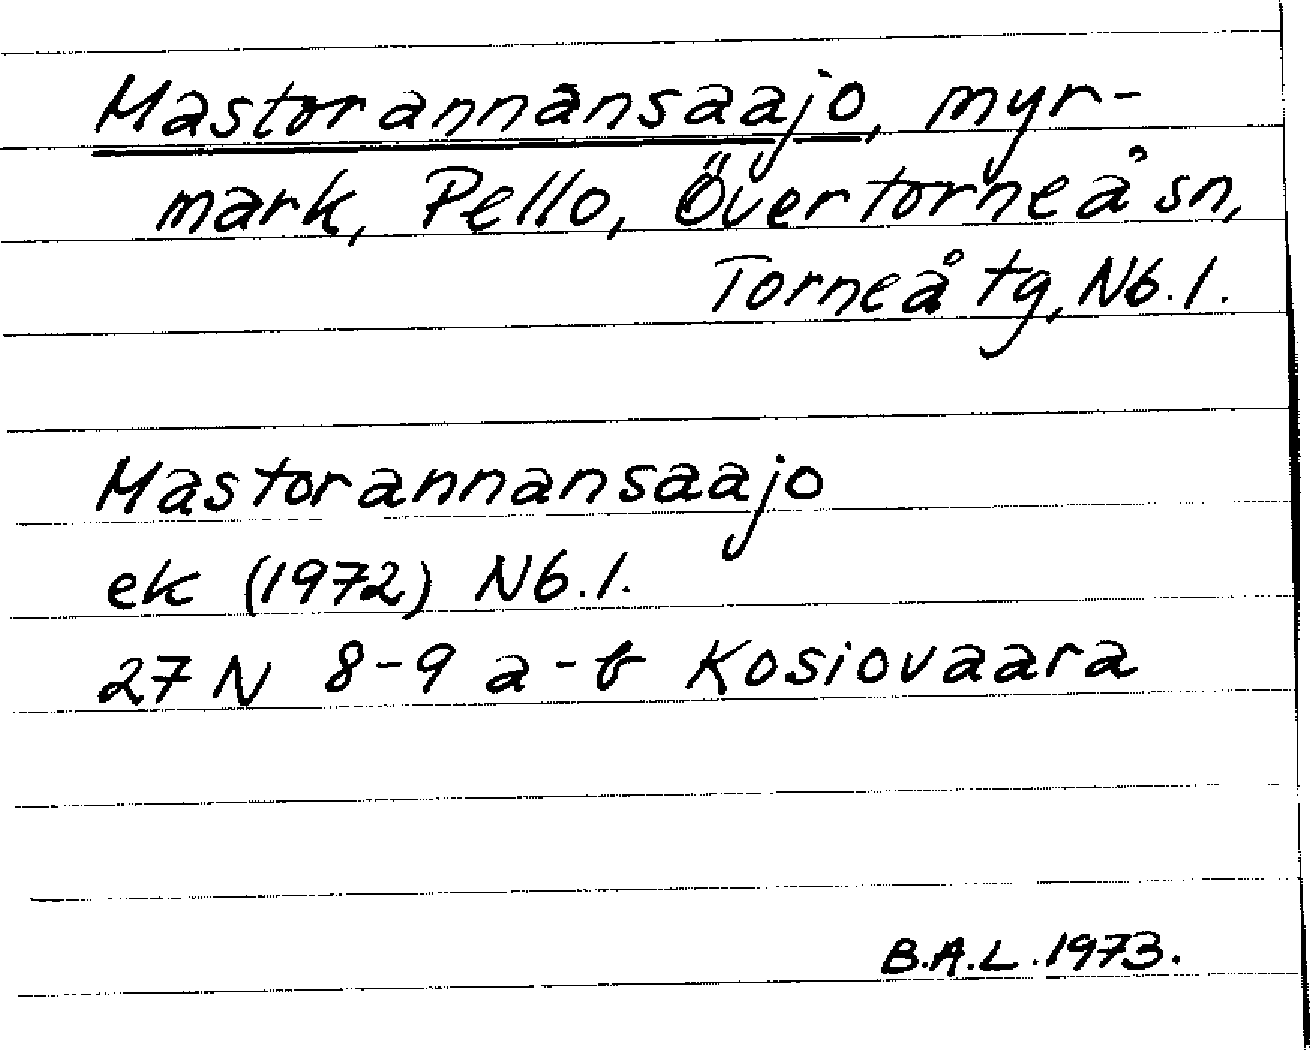 Mastorannansaajo, myr-
mark, Pello, Övertorneå sn,
Torneå tg, Nb.l.
Mastorannansaajo
ek (1972) Nb.l.
27 N 8-9 a-b Kosiovaara
B.A.L. 1973.